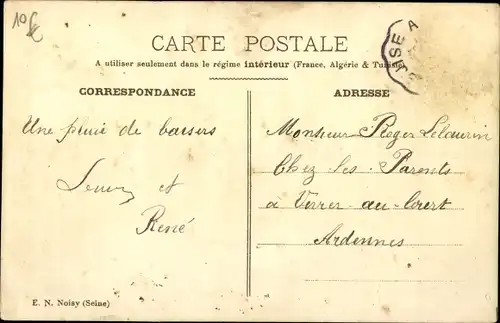 10
CARTE POSTALE
A utiliser seulement dans le régime intérieur (France, Algérie & Tunisie)
CORRESPONDANCE
ADRESSE
Une pluie de baisers
et
René
Monsieur Roger Lelaurin
Chez Ses Parents
à au-
Ardennes
E. N. Noisy (Seine)